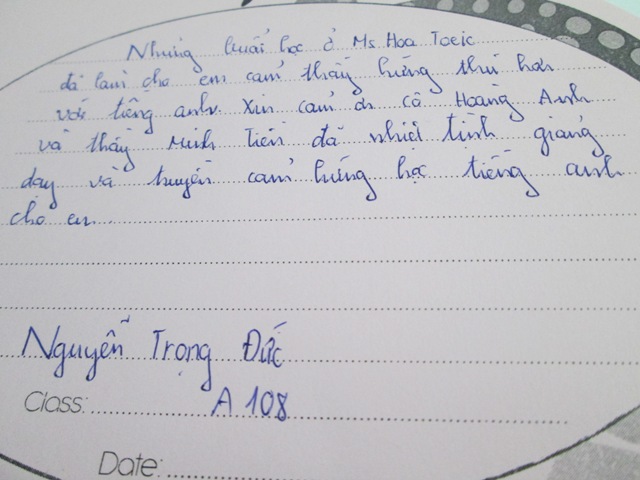 Những buổi học ở Ms Hoa Toeic
đã làm cho em cảm thấy hứng thú hơn
với tiếng anh. Xin cảm ơn cô Hoàng Anh
và thầy Minh Tiến đã nhiệt tình giảng
dạy và truyền cảm hứng học tiếng anh
cho em.
Nguyễn Trọng Đức
Class: A 108
Date: